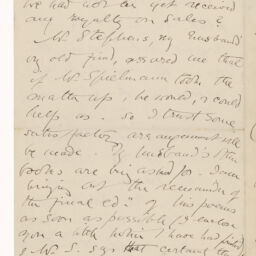 we had not as yet received
any royalty on sales &
Mr. Stephens, my husband's
v. old friend, assured me that
if Mr. Spielmann took the
matter up, he would, & could
help us. so I trust some
satisfactory arrangement will
be made. My husband's other
books are being asked for. I am
bringing out the remainder of
the final edn of his poems
as soon as possible. I enclose
you a note which I have had printed
& Mr. S. says that certainly the